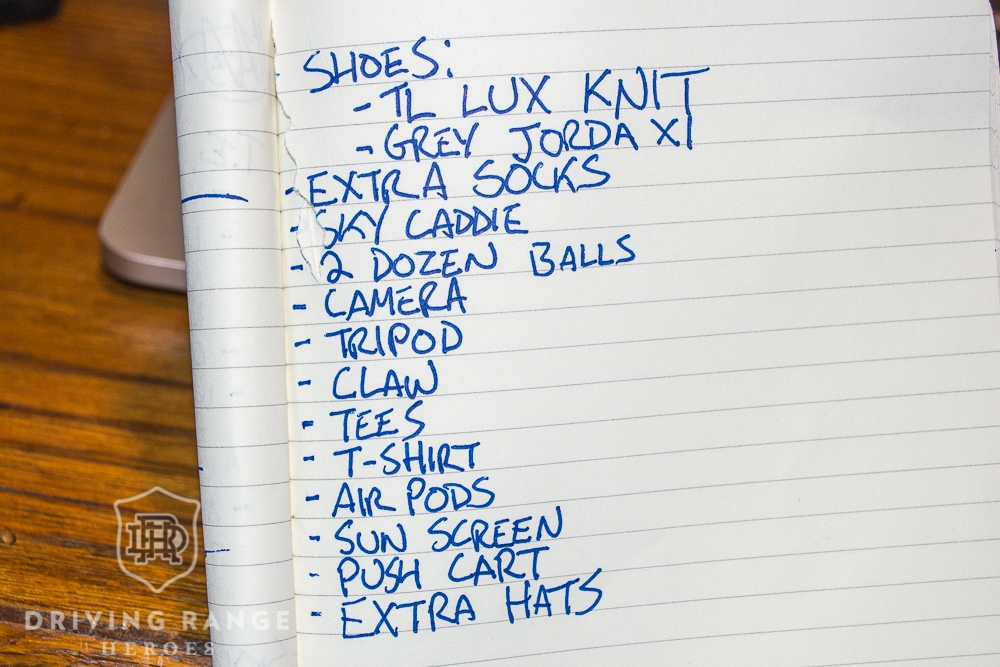 SHOES:
- TL LUX KNIT
- GREY JORDA XI
- EXTRA SOCKS
- SKY CADDIE
- 2 DOZEN BALLS
- CAMERA
- TRIPOD
- CLAW
- TEES
- T-SHIRT
- AIR PODS
- SUN SCREEN
- PUSH CART
- EXTRA HATS
DRH
DRIVING RANGE
HEROES